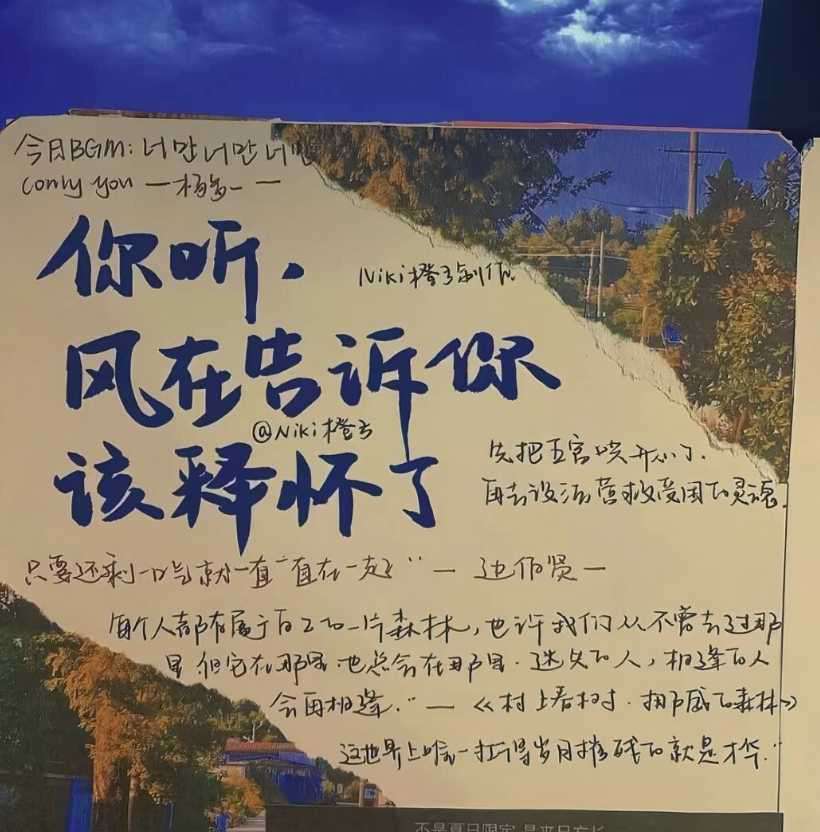 今日BGM:너만너만너만
(only you 一杨多一 一
你听,
Niki橙子制作
风在告诉你
@Niki橙子
该释怀了
先把五官哄开心了.
再去设法营救受困的灵魂.
只要还剩一口气就一直一直在一起" — 边伯贤 —
每个人都有属于自己的一片森林,也许我们从不曾去过那
里.但它在那里.也总会在那里.迷失的人,相逢的人
会再相逢." — 《村上春树.挪威的森林》
这世界上唯一扛得岁月摧残的就是才华."
不是夏日限定 是来日方长